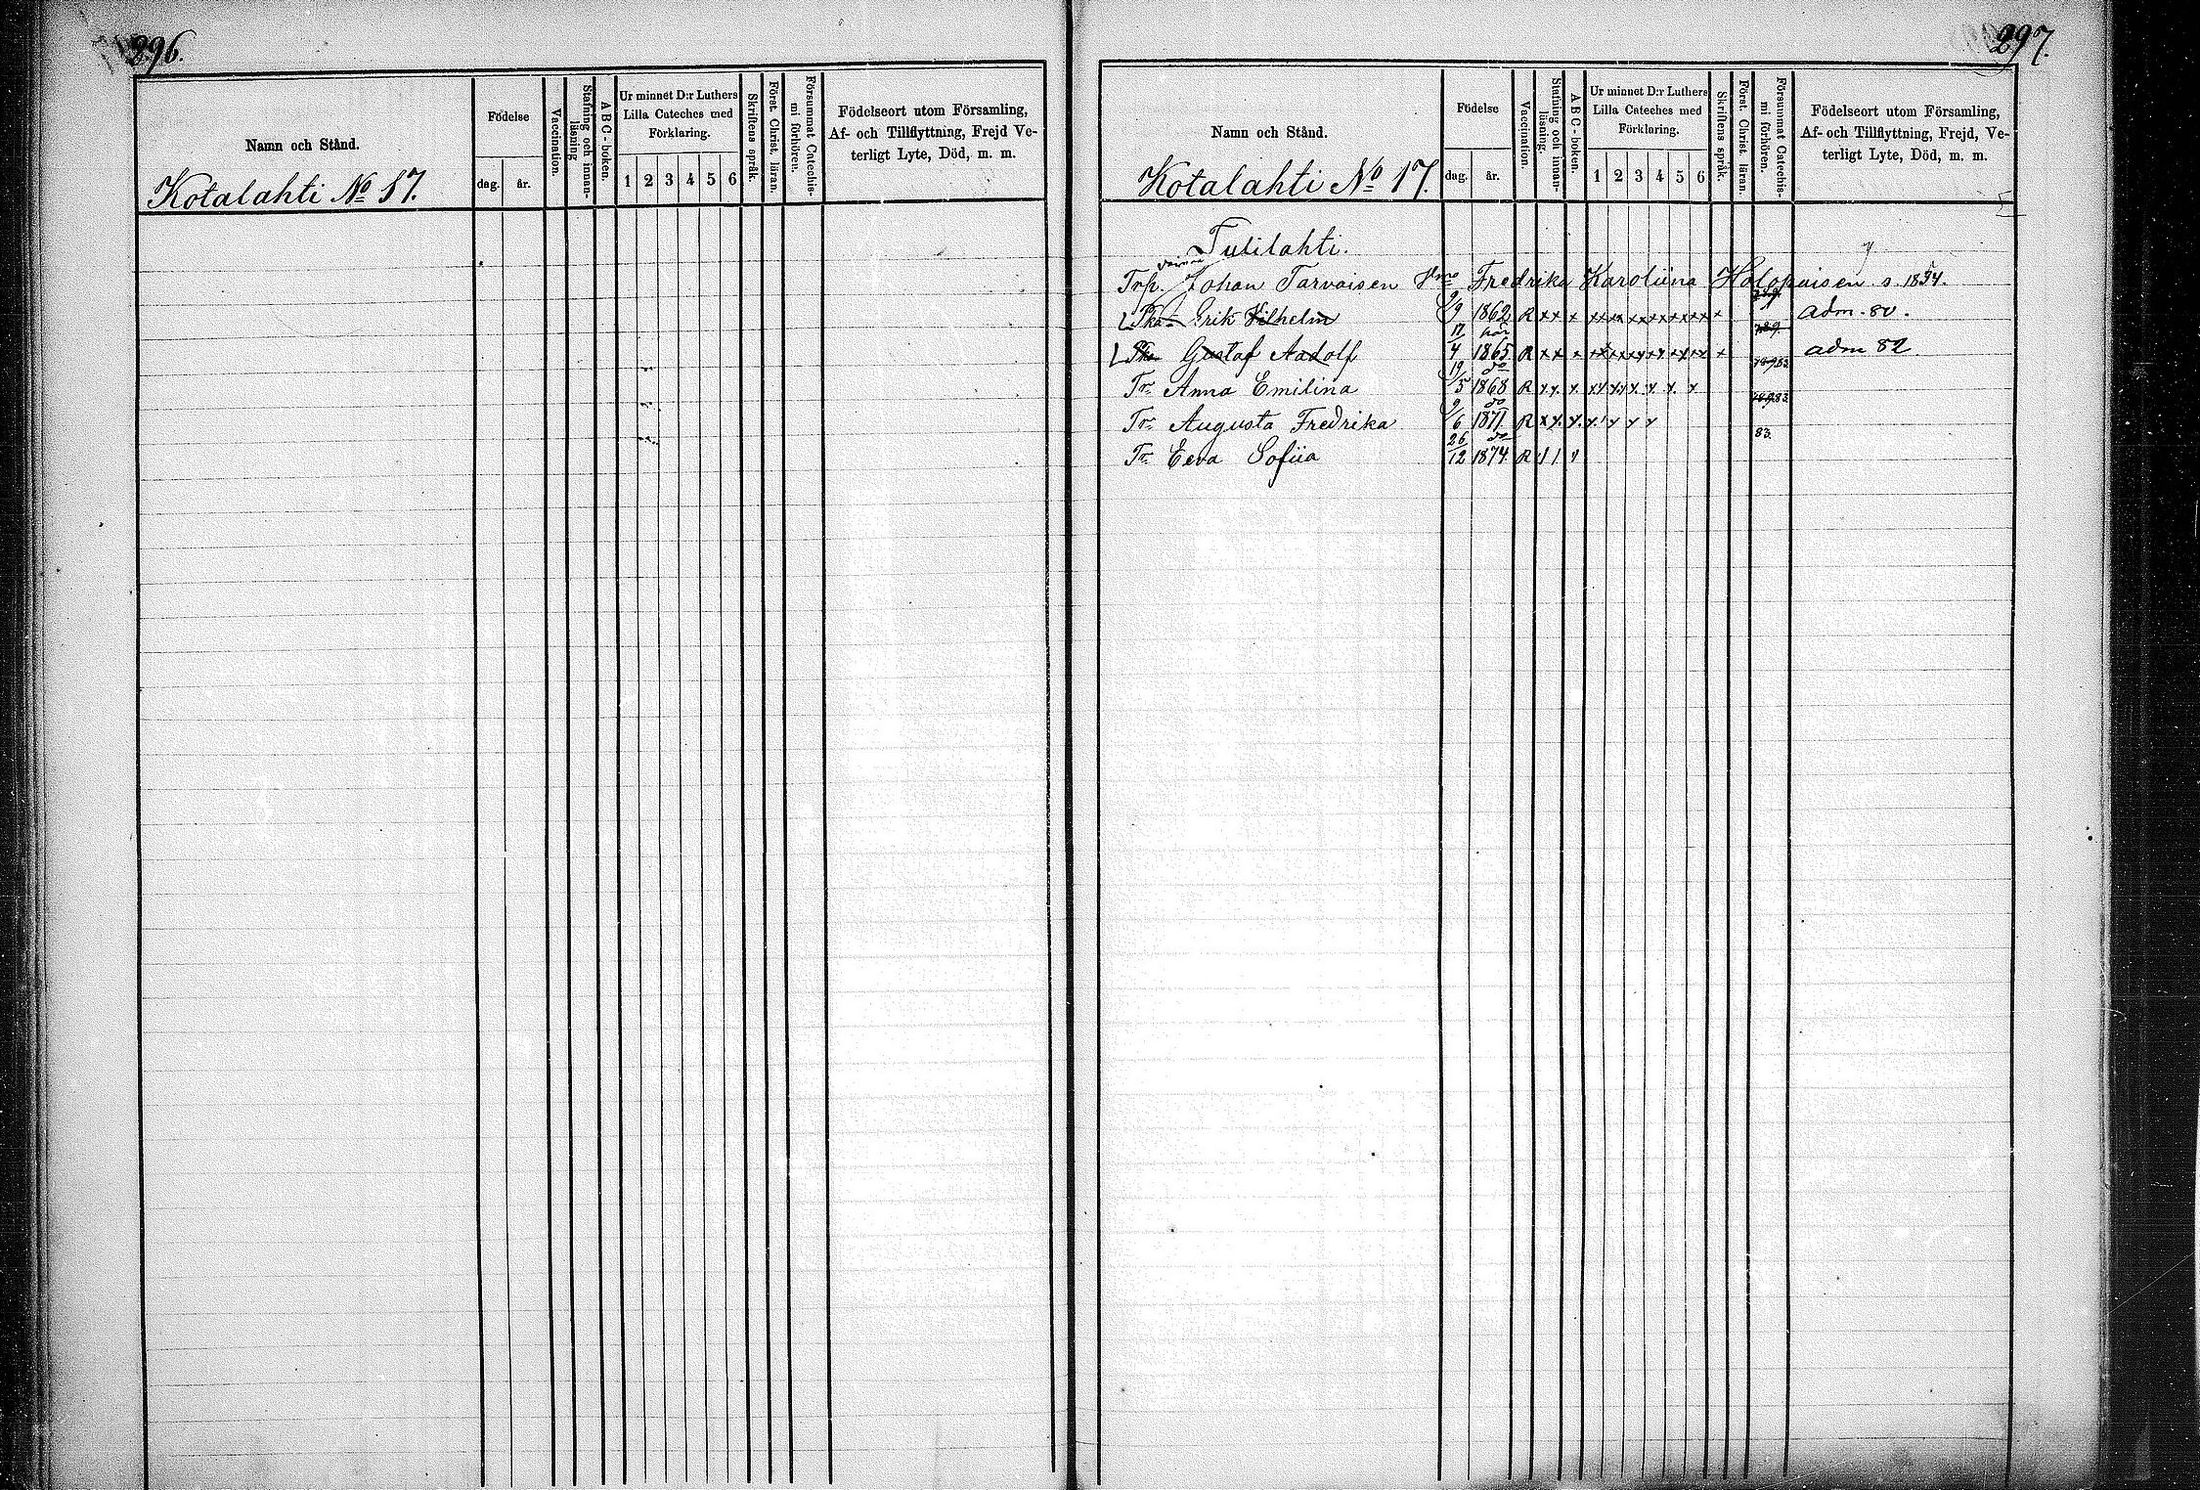 296.
Namn och Stånd.
Kotalahti No 17.
Födelse
dag. år.
Vaccination.
Stafning och innan-
läsning
ABC-boken.
Ur minnet D:r Luthers
Lilla Cateches med
Förklaring.
1 2 3 4 5 6
Skriftens språk.
Först. Christ. läran.
Försummat Catechis-
mi förhören.
Födelseort utom Församling,
Af- och Tillflyttning, Frejd Ve-
terligt Lyte, Död, m. m.
297.
Namn och Stånd.
Kotalahti No 17.
Födelse
dag. år.
Vaccination.
Stafning och innan-
läsning.
ABC-boken.
Ur minnet D:r Luthers
Lilla Cateches med
Förklaring.
1 2 3 4 5 6
Skriftens språk.
Först. Christ. läran.
Försummat Catechis-
mi förhören.
Födelseort utom Församling,
Af- och Tillflyttning, Frejd, Ve-
terligt Lyte, Död, m. m.
Tulilahti.
Trp. Johan Tarvaisen Hmo Fredrika Karoliina Holopaisen s. 1834.
Erik Vilhelm 9/9 1862 R x x x adm. 80.
17 här
Gustaf Aadolf 4 1865 R x x x adm 82
19 do
Tr. Anna Emilina 5 1868 R x x x
9 do
Tr. Augusta Fredrika 6 1871 R x x x
26 do 83.
Tr. Eeva Sofiia 12 1874 R